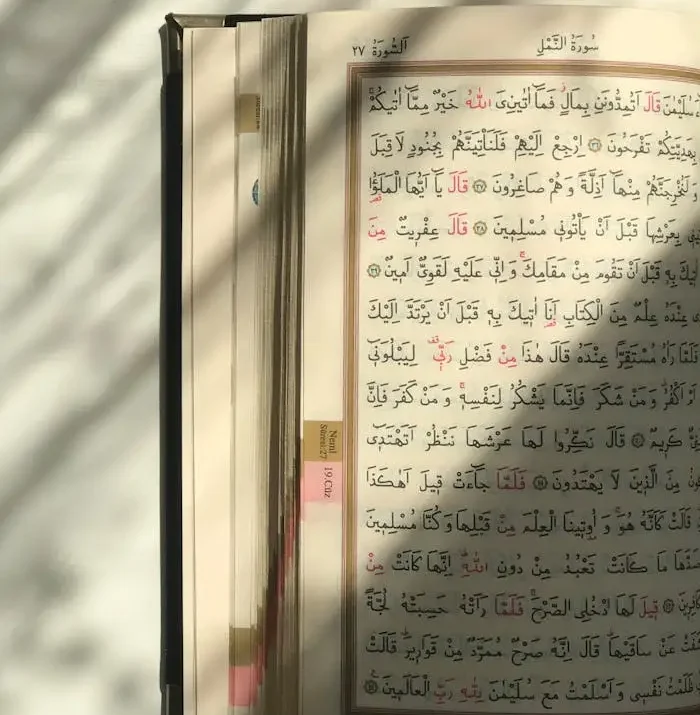 سُورَةُ النَّمْلِ
اَلسُّورَةُ ٢٧
سُلَيْمٰنَ قَالَ اَتُمِدُّونَنِ بِمَالٍۘ فَمَٓا اٰتٰينِيَ اللّٰهُ خَيْرٌ مِمَّٓا اٰتٰيكُمْۚ
بِهَدِيَّتِكُمْ تَفْرَحُونَ ﴿٣٦﴾ اِرْجِعْ اِلَيْهِمْ فَلَنَأْتِيَنَّهُمْ بِجُنُودٍ لَا قِبَلَ
وَلَنُخْرِجَنَّهُمْ مِنْهَٓا اَذِلَّةً وَهُمْ صَاغِرُونَ ﴿٣٧﴾ قَالَ يَٓا اَيُّهَا الْمَلَؤُا
بِعَرْشِهَا قَبْلَ اَنْ يَأْتُونِي مُسْلِمِينَ ﴿٣٨﴾ قَالَ عِفْرِيتٌ مِنَ
بِهِ قَبْلَ اَنْ تَقُومَ مِنْ مَقَامِكَۚ وَاِنِّي عَلَيْهِ لَقَوِيٌّ اَمِينٌ ﴿٣٩﴾
عِنْدَهُ عِلْمٌ مِنَ الْكِتَابِ اَنَا اٰتِيكَ بِهِ قَبْلَ اَنْ يَرْتَدَّ اِلَيْكَ
فَلَمَّا رَاٰهُ مُسْتَقِرًّا عِنْدَهُ قَالَ هٰذَا مِنْ فَضْلِ رَبِّي۠ لِيَبْلُوَنِٓي
اَمْ اَكْفُرُۜ وَمَنْ شَكَرَ فَاِنَّمَا يَشْكُرُ لِنَفْسِهِۚ وَمَنْ كَفَرَ فَاِنَّ
كَرِيمٌ ﴿٤٠﴾ قَالَ نَكِّرُوا لَهَا عَرْشَهَا نَنْظُرْ اَتَهْتَدِٓي
مِنَ الَّذِينَ لَا يَهْتَدُونَ ﴿٤١﴾ فَلَمَّا جَٓاءَتْ قِيلَ اَهٰكَذَا
قَالَتْ كَاَنَّهُ هُوَۚ وَاُو۫تِينَا الْعِلْمَ مِنْ قَبْلِهَا وَكُنَّا مُسْلِمِينَ
مَا كَانَتْ تَعْبُدُ مِنْ دُونِ اللّٰهِۜ اِنَّهَا كَانَتْ مِنْ
﴿٤٣﴾ قِيلَ لَهَا ادْخُلِي الصَّرْحَۚ فَلَمَّا رَاَتْهُ حَسِبَتْهُ لُجَّةً
عَنْ سَاقَيْهَاۜ قَالَ اِنَّهُ صَرْحٌ مُمَرَّدٌ مِنْ قَوَارِيرَۜ قَالَتْ
ظَلَمْتُ نَفْسِي وَاَسْلَمْتُ مَعَ سُلَيْمٰنَ لِلّٰهِ رَبِّ الْعَالَمِينَ ﴿٤٤﴾
Neml
Sûresi:27
19.Cüz